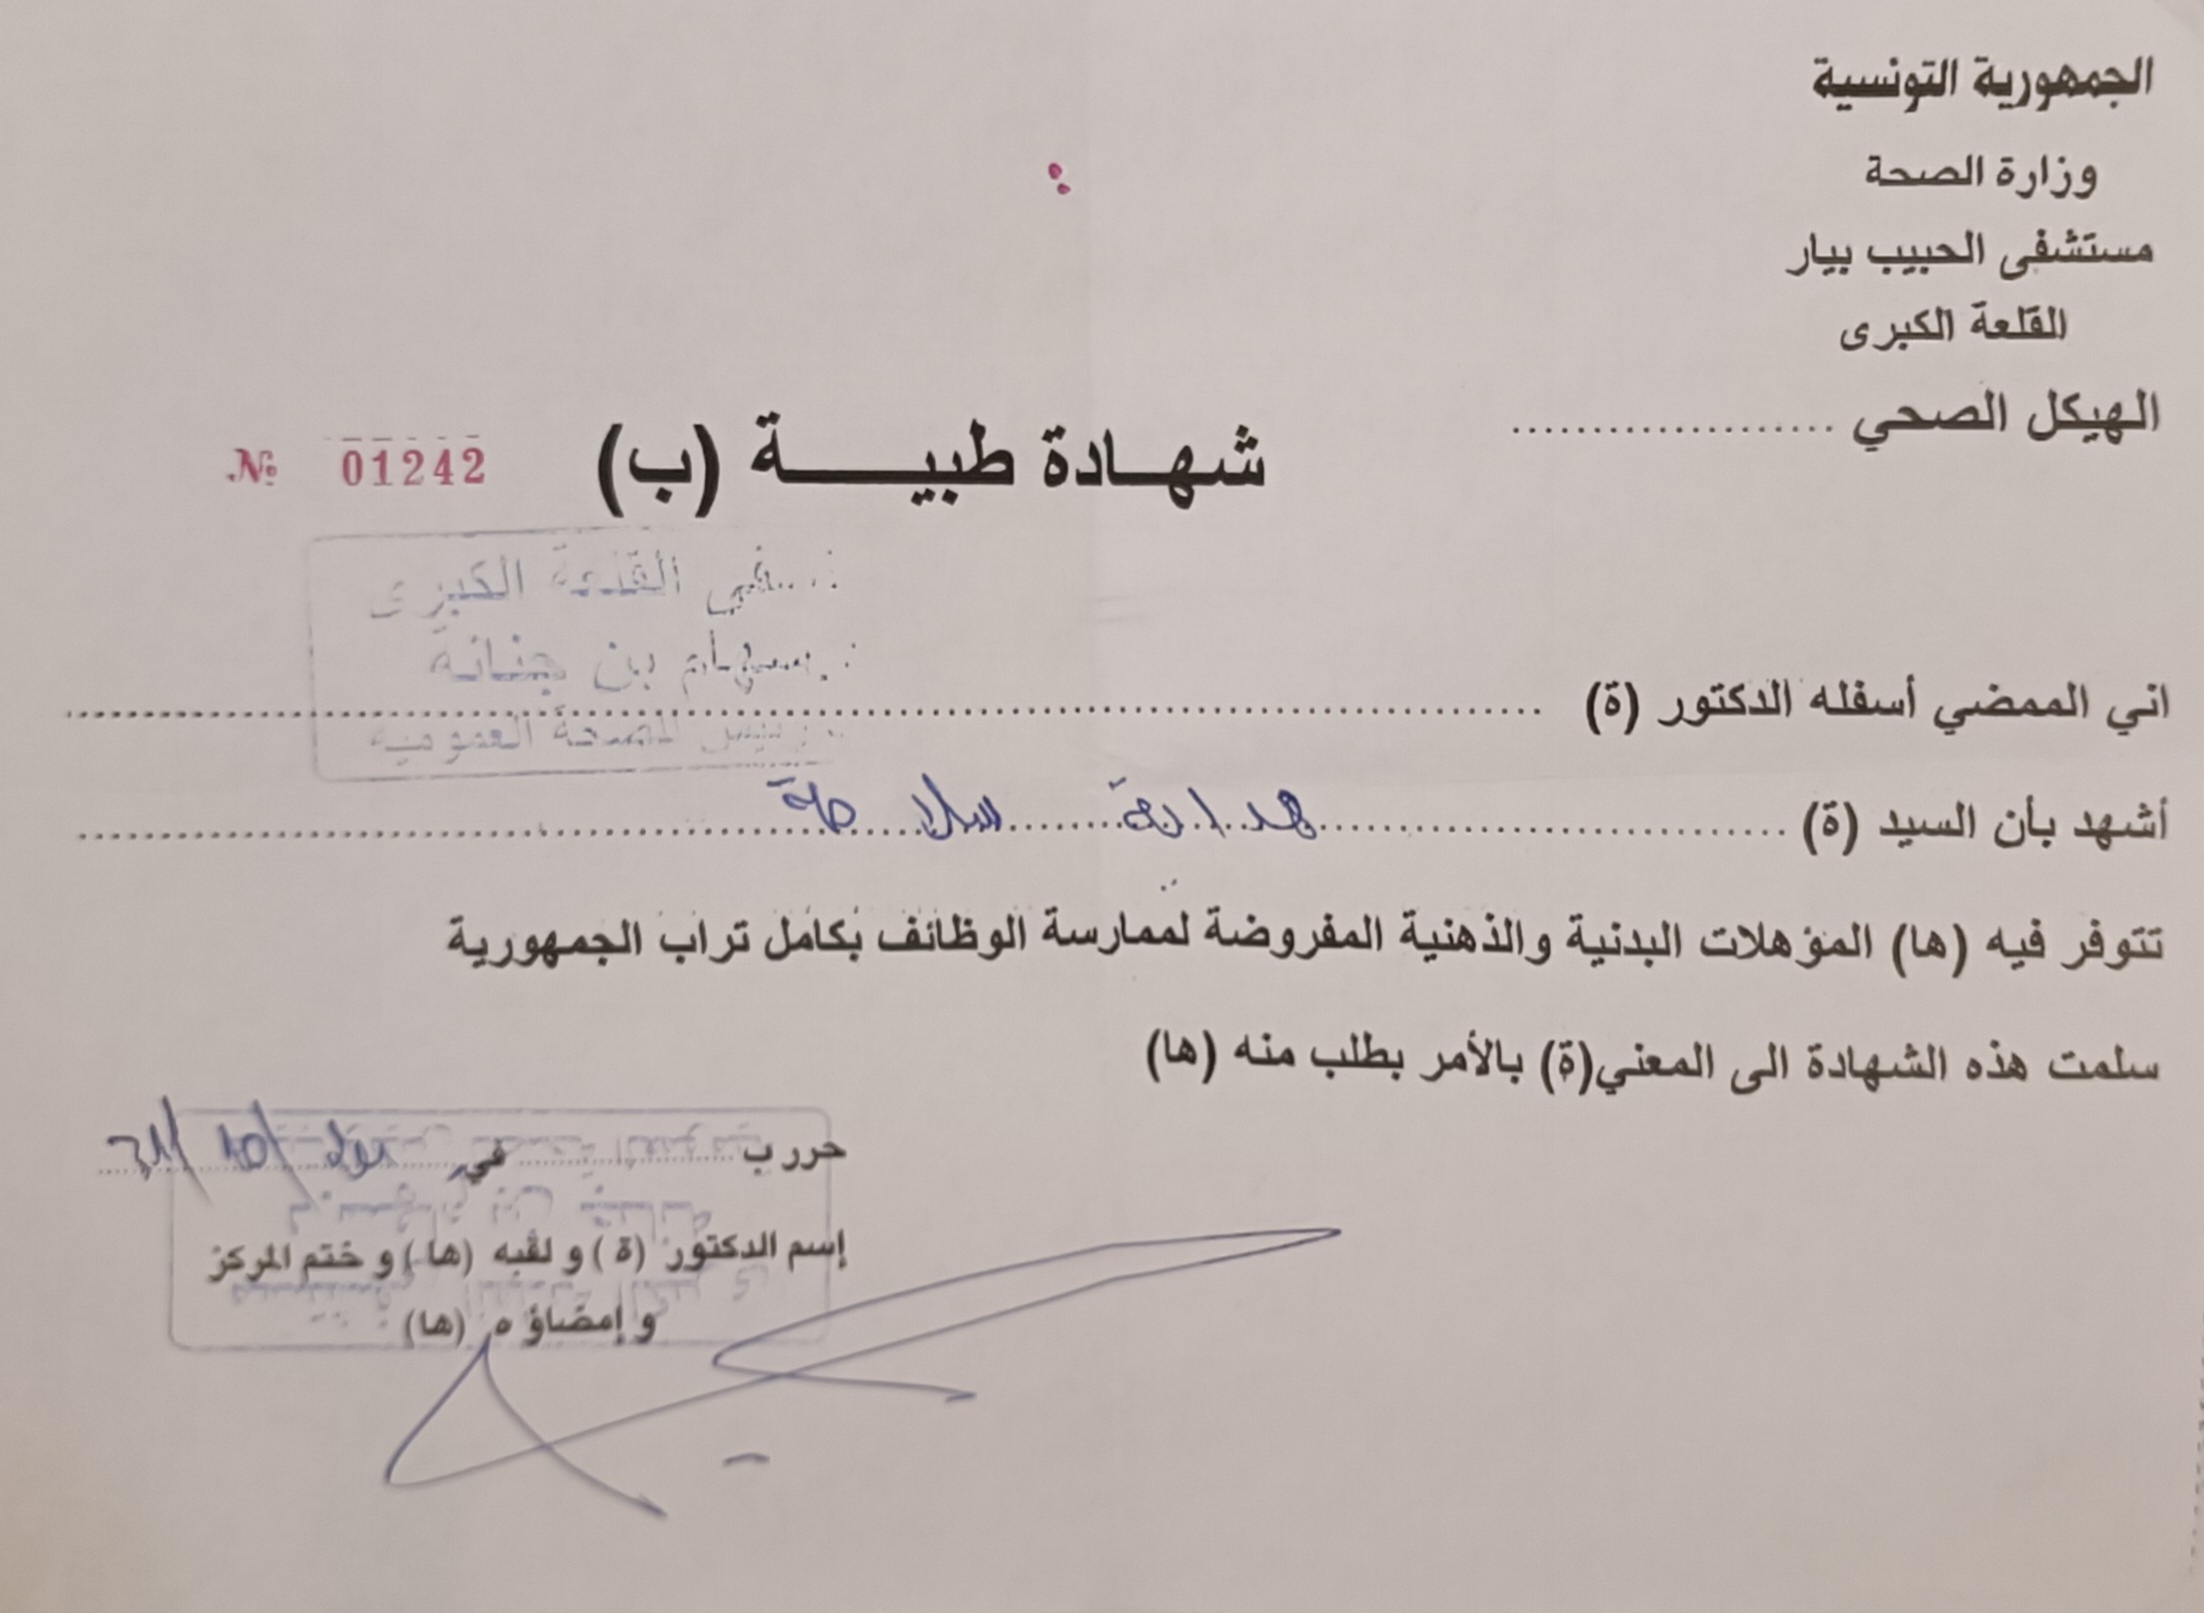 الجمهورية التونسية
وزارة الصحة
مستشفى الحبيب بيار
القلعة الكبرى
الهيكل الصحي ....................
شهادة طبية (ب)
№ 01242
القلعة الكبرى
سهام بن جنانة
للصحة العمومية
اني الممضي أسفله الدكتور (ة) ....................
أشهد بأن السيد (ة) ....................
تتوفر فيه (ها) المؤهلات البدنية والذهنية المفروضة لممارسة الوظائف بكامل تراب الجمهورية
سلمت هذه الشهادة الى المعني(ة) بالأمر بطلب منه (ها)
حرر ب .................... في
إسم الدكتور (ة) و لقبه (ها) و ختم المركز
و إمضاؤه (ها)